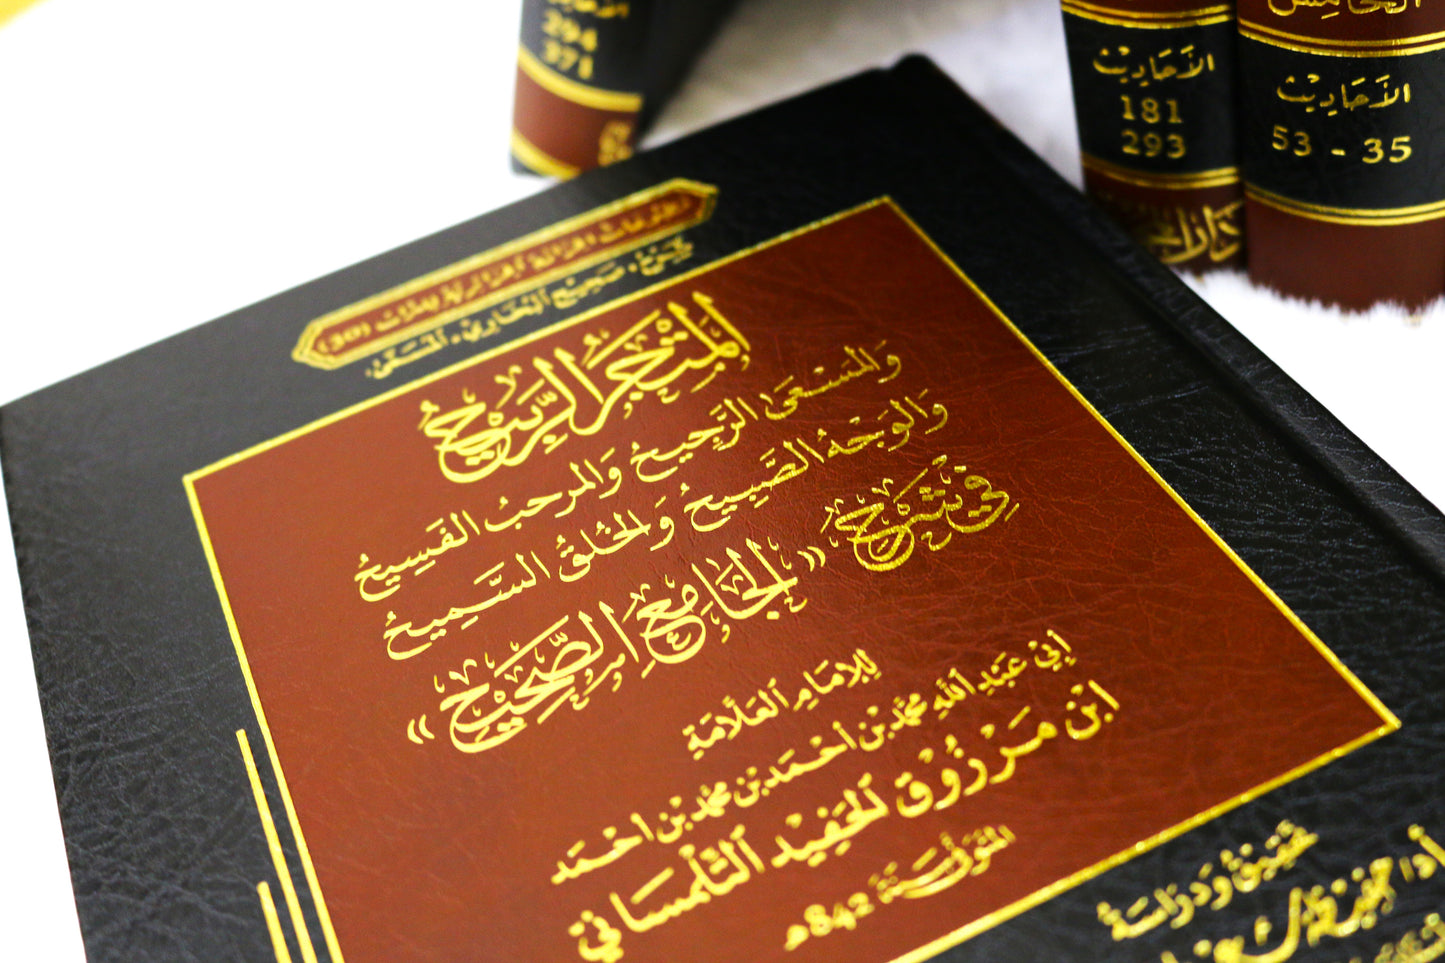 شرح صحيح البخاري المسمى
المتجر الربيح
والمسعى الرجيح والمرحب الفسيح
والوجه الصبيح والخلق السميح
في شرح
«الجامع الصحيح»
للإمام العلامة
أبي عبد الله محمد بن أحمد بن محمد بن أحمد
ابن مرزوق الحفيد التلمساني
المتوفى سنة 842هـ
تحقيق ودراسة
294
371
الأحاديث
181
293
دار
الخامس
الأحاديث
53 - 35